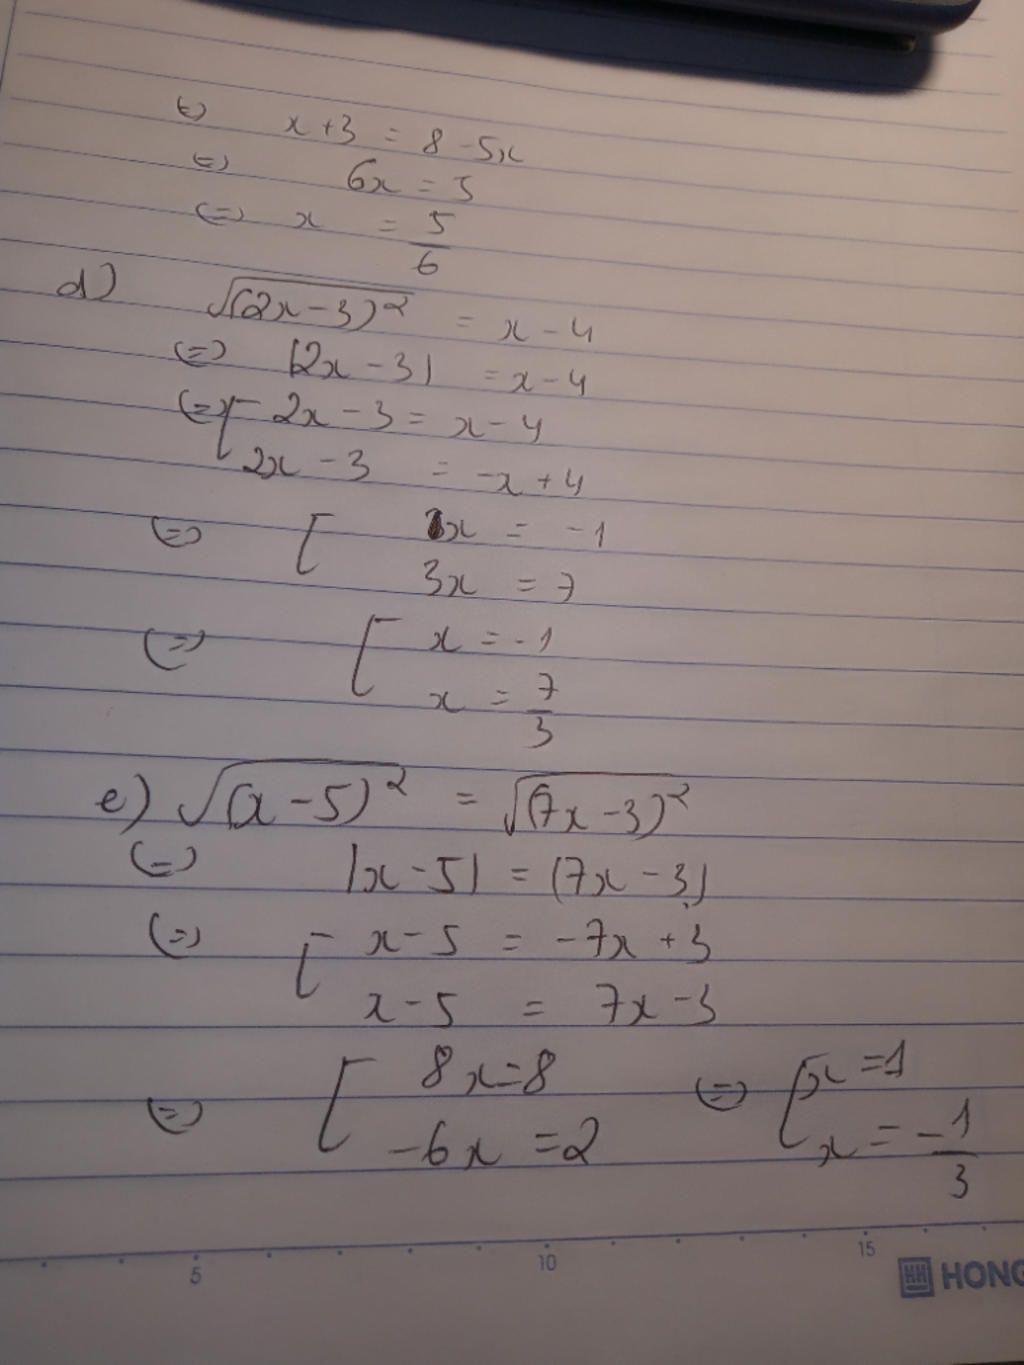 (=) x + 3 = 8 - 5x
(=) 6x = 5
(=) x = 5/6
d) √(2x - 3)² = x - 4
(=) |2x - 3| = x - 4
(=) [ 2x - 3 = x - 4
2x - 3 = -x + 4
(=) [ x = -1
3x = 7
(=) [ x = -1
x = 7/3
e) √(x - 5)² = √(7x - 3)²
(=) |x - 5| = |7x - 3|
(=) [ x - 5 = -7x + 3
x - 5 = 7x - 3
(=) [ 8x = 8 (=) [ x = 1
-6x = 2 x = -1/3
5 10 15
HONG